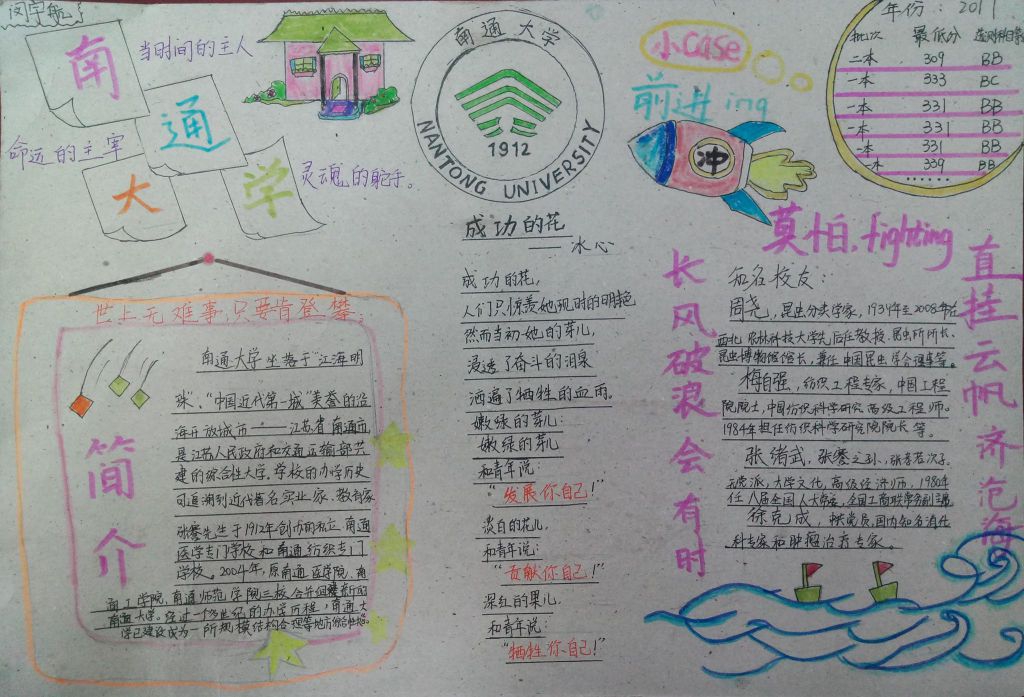 闵宇航
南
通
大
学
当时间的主人
命运的主宰
灵魂的舵手。
南通大学
1912
NANTONG UNIVERSITY
小case
前进ing
冲
莫怕.fighting
年份：2011
批次 最低分
二本 309 BB
一本 333 BC
一本 331 BB
一本 331 BB
一本 331 BB
一本 339 BB
……
世上无难事,只要肯登攀;
简介
南通大学坐落于“江海明
珠”、“中国近代第一城”美誉的沿
海开放城市——江苏省南通市,
是江苏人民政府和交通运输部共
建的综合性大学。学校的办学历史
可追溯到近代著名实业家、教育家
张謇先生于1912年创办的私立南通
医学专门学校和南通纺织专门
学校。2004年,原南通医学院、南
通工学院、南通师范学院三校合并组建新的
南通大学。经过一个多世纪的办学历程,南通大
学已建设成为一所规模结构合理等地方综合性大学。
成功的花
——冰心
成功的花,
人们只惊羡她现时的明艳
然而当初她的芽儿,
浸透了奋斗的泪泉
洒遍了牺牲的血雨。
嫩绿的芽儿:
嫩绿的芽儿
和青年说:
“发展你自己!”
淡白的花儿,
和青年说:
“贡献你自己!”
深红的果儿,
和青年说:
“牺牲你自己!”
长风破浪会有时
知名校友:
周尧,昆虫分类学家,1934年至2008年在
西北农林科技大学先后任教授、昆虫所所长、
昆虫博物馆馆长,兼任中国昆虫学会理事等。
梅自强,纺织工程专家,中国工程
院院士,中国纺织科学研究高级工程师。
1984年担任纺织科学研究院院长等。
张绪武,张謇之孙、张孝若次子。
无党派,大学文化,高级经济师,1980年
任八届全国人大常委,全国工商联常务副主席
徐克成,中共党员,国内知名消化
科专家和肿瘤治疗专家。
直挂云帆济沧海